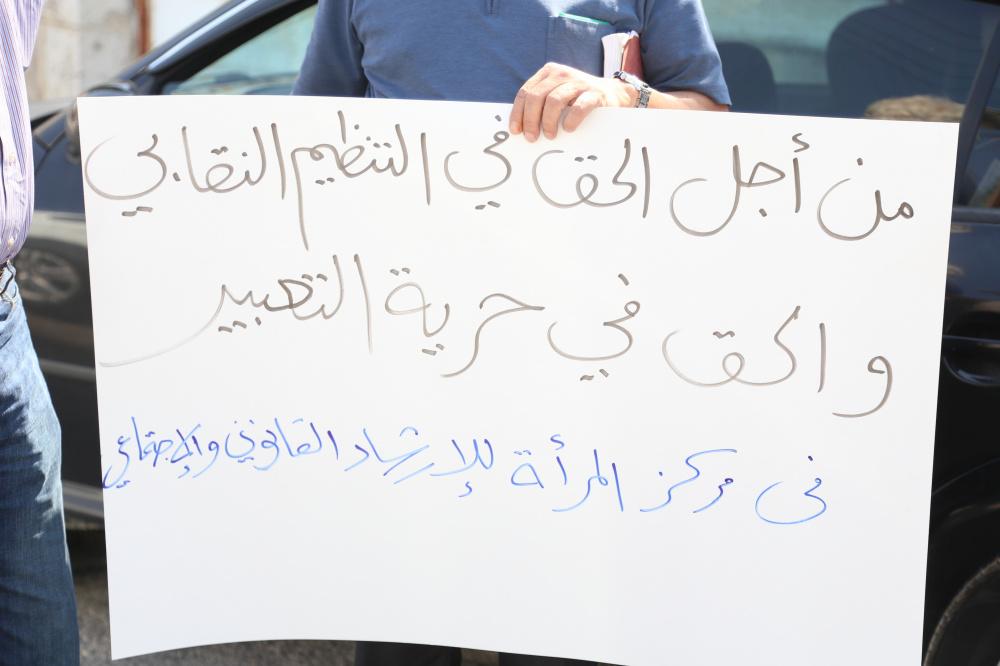 من أجل الحق في التنظيم النقابي
و الحق في حرية التعبير
في مركز المرأة للإرشاد القانوني والإجتماعي